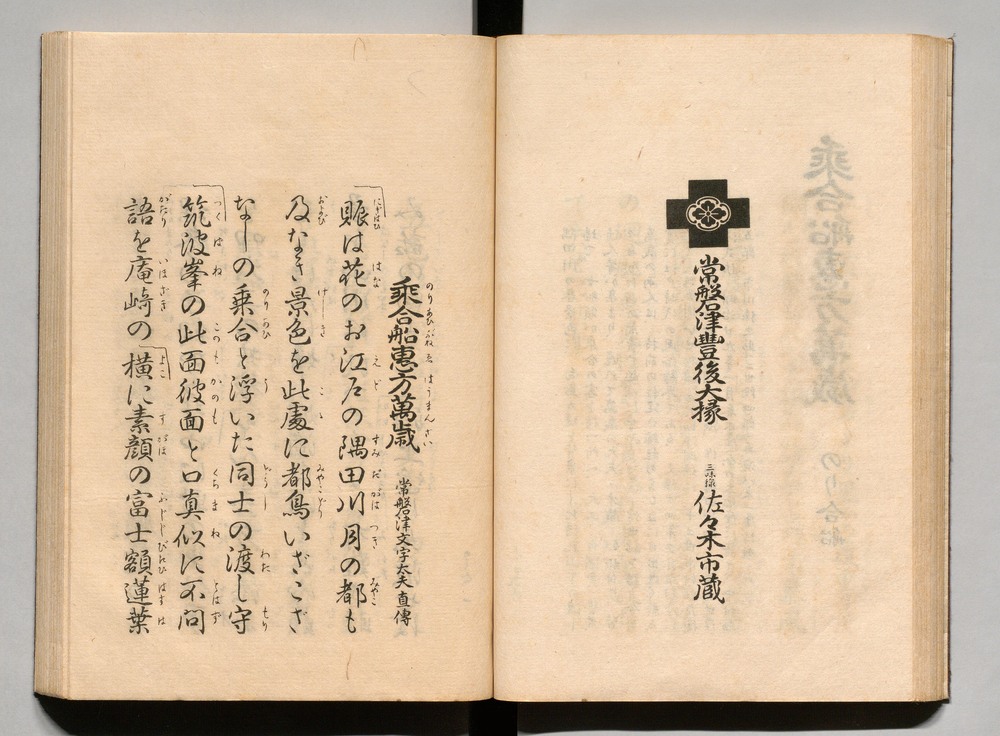 常磐津豐後大掾
三味線 佐々木市蔵
乘合船惠方萬歳
常磐津文字太夫直傳
賑は花のお江戸の隅田川月の都も
及なき景色を此處に都鳥いざこざ
なしの乘合と浮いた同士の渡し守
筑波峯の此面彼面と口真似に不問
語を庵崎の横に素顔の富士額蓮葉